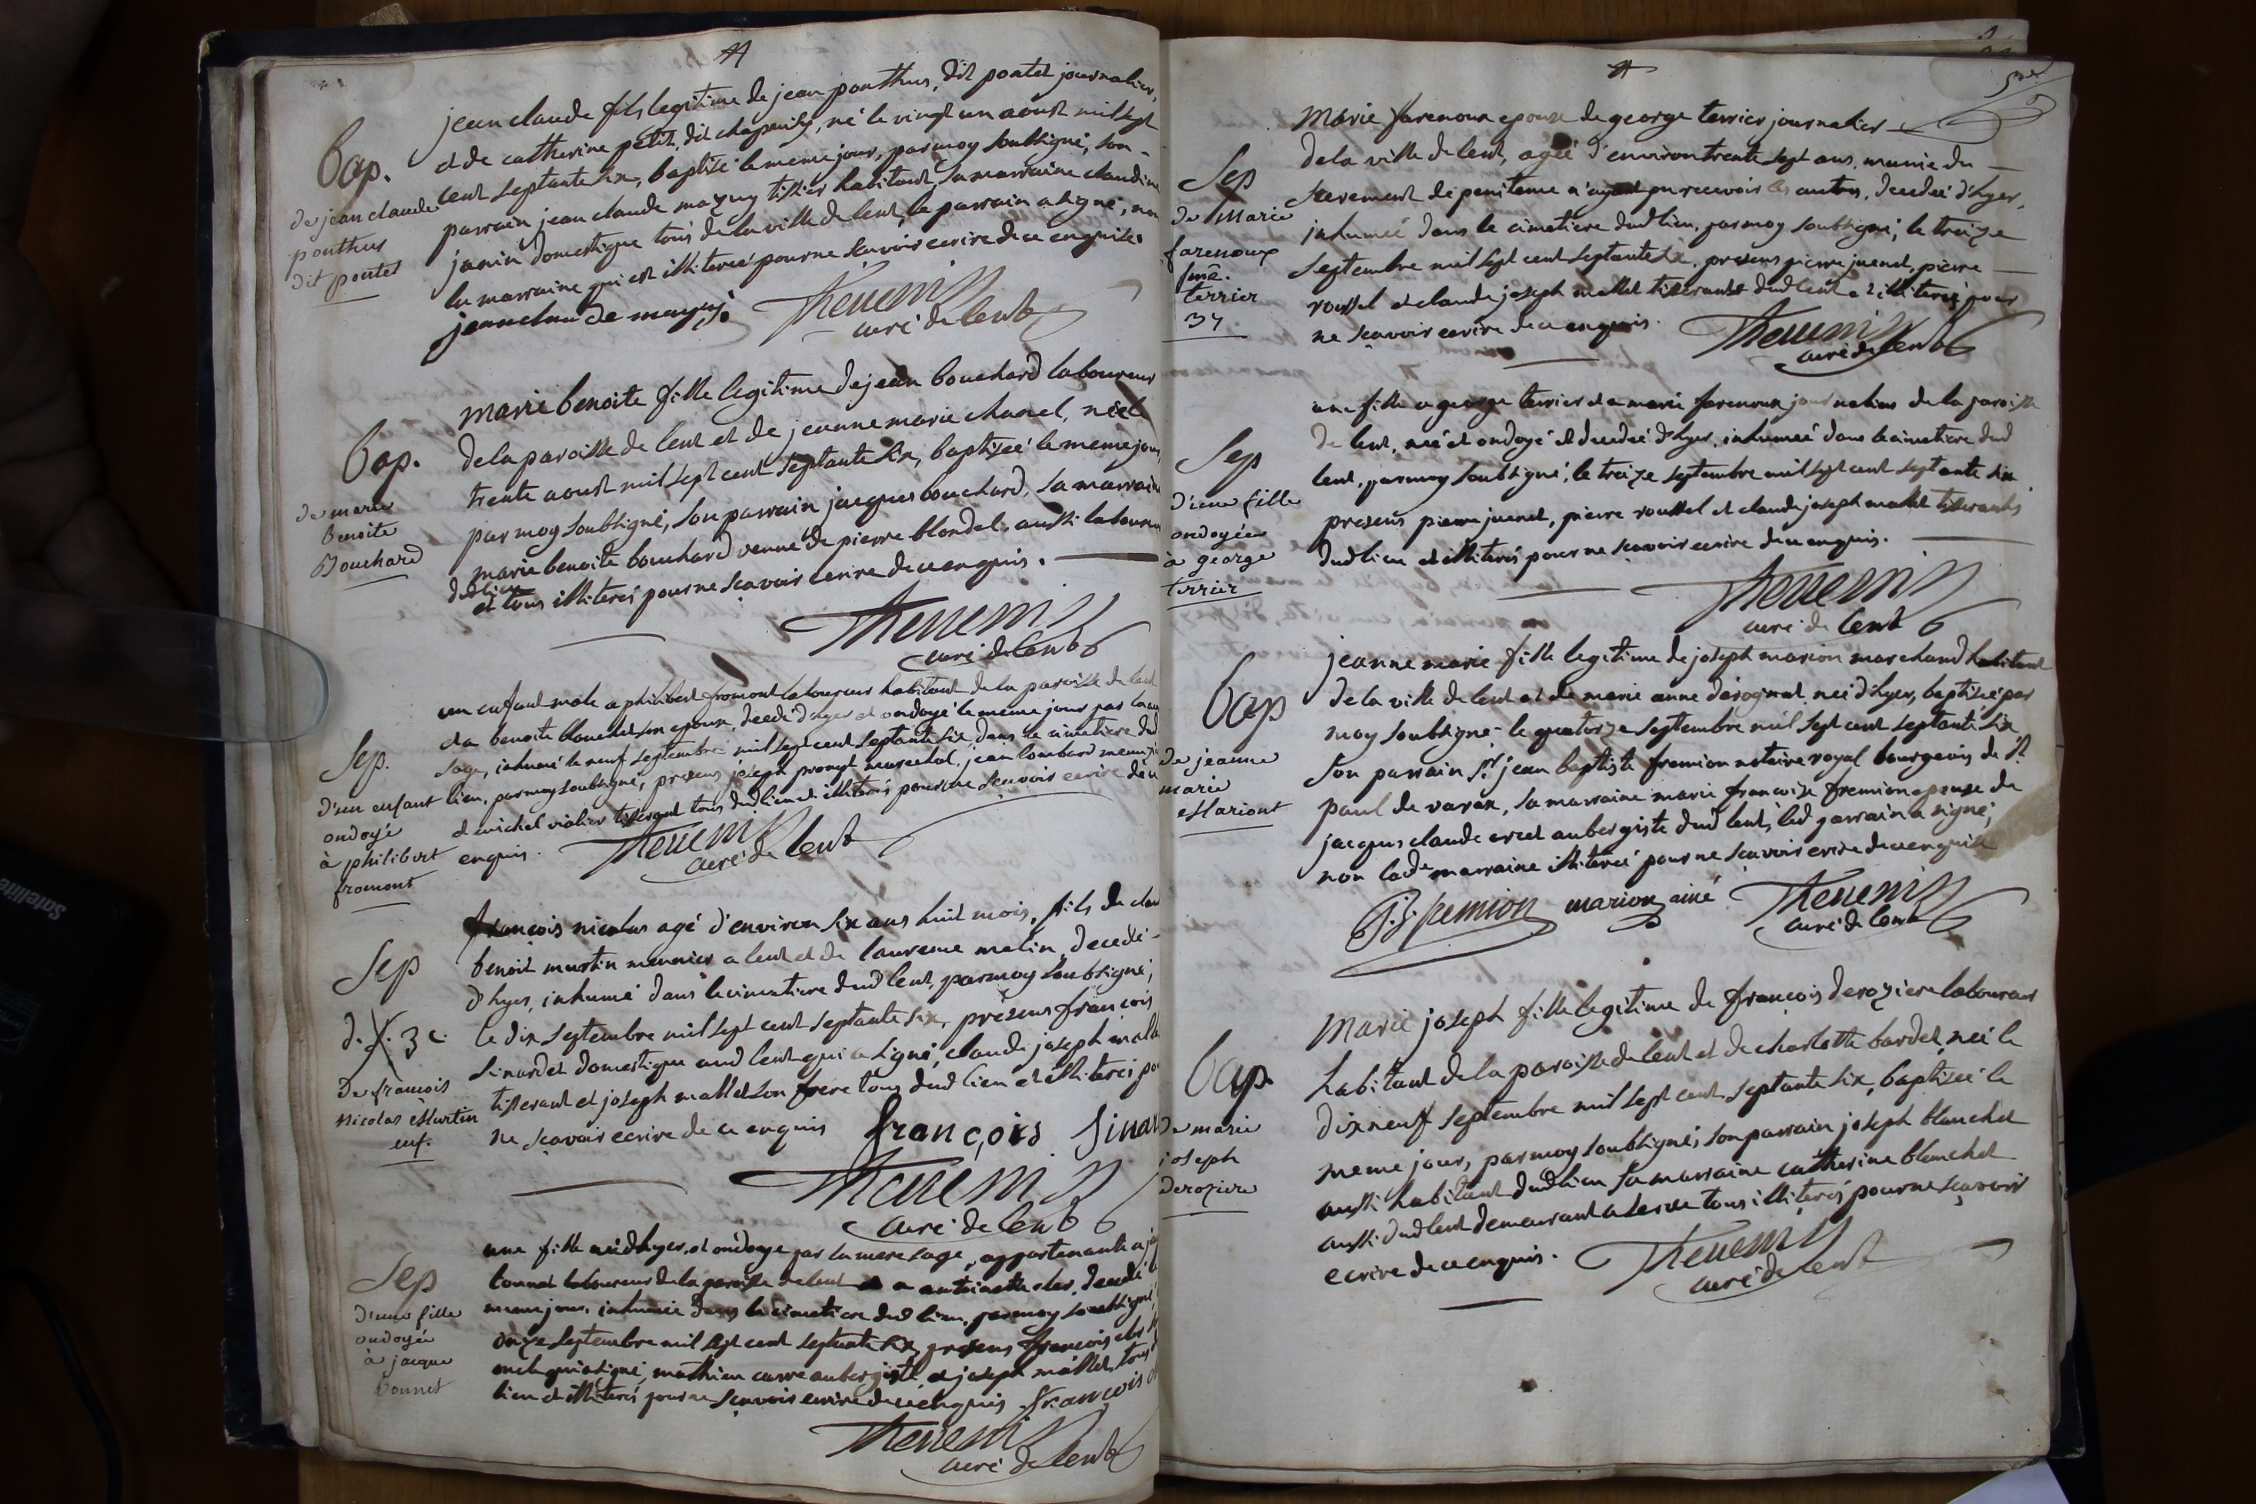 jean claude fils legitime de jean ponthus, dit pontet journalier,
et de catherine petit, dit chapuisy, né le vingt un aoust mil sept
cent septante six, baptisé le meme jour, par moy soubsigné, son
parrain jean claude mazuy tissier habitant, sa marraine claudine
janin domestique tous de la ville de lent, le parrain a signé, non
la marraine qui est illiterée pour ne scavoir ecrire de ce enquise.
jean claude mazuy. Thevenin
curé de lent
Bap.
de jean claude
ponthus
dit pontet
marie benoite fille legitime de jean bouchard laboureur
de la paroisse de lent et de jeanne marie chanel, née le
trente aoust mil sept cent septante six, baptisée le meme jour
par moy soubsigné, son parrain jacques bouchard, sa marraine
marie benoite bouchard veuve de pierre blondel aussi laboureur
dud lieu
et tous illiterés pour ne scavoir ecrire de ce enquis.
Thevenin
curé de lent
Bap.
de marie
Benoite
Bouchard
un enfant male a philibert fromont laboureur habitant de la paroisse de lent
et a benoite blanchet son epouse, decedé d'hyer et ondoyé le meme jour par la
sage, inhumé le neuf septembre mil sept cent septante six dans le cimetiere dud
lieu, par moy soubsigné, presens joseph prompt marechal, jean lombard
et michel violier tisserant tous dud lieu et illiterés pour ne scavoir ecrire de ce
enquis. Thevenin
curé de lent
Sep.
d'un enfant
ondoyé
à philibert
fromont
françois nicolas agé d'environ six ans huit mois, fils de
benoit martin meunier a lent et de laurence matin, decedé
d'hyer, inhumé dans le cimetiere dud lent, par moy soubsigné,
le dix septembre mil sept cent septante six, presens françois
sinardet domestique aud lent qui a signé, claude joseph mallet
tisserant et joseph mallet son frere tous dud lieu et illiterés pour
ne scavoir ecrire de ce enquis françois Sinar
Thevenin
curé de lent
Sep
De francois
Nicolas Martin
enf.
une fille née d'hyer, et ondoyée par la mere sage, appartenante a
bonnet laboureur de la paroisse de lent a antoinette decedée
meme jour, inhumée dans le cimetiere dud lieu, par moy soubsigné,
onze septembre mil sept cent septante six, presens françois
qui a signé, mathieu carre aubergiste et joseph mallet, tous
lieu et illiterés pour ne scavoir ecrire de ce enquis françois
Thevenin
curé de lent
Sep
d'une fille
ondoyée
à jacque
bonnet
Marie farenoux epouse de george terrier journalier
de la ville de lent, agée d'environ trente sept ans, munie du
sacrement de penitence n'ayant pu recevoir les autres, decedée d'hyer,
inhumée dans le cimetiere dud lieu, par moy soubsigné, le treize
septembre mil sept cent septante six, presens pierre juenet, pierre
roussel et claude joseph mallet tisserants dud lent et illiterés pour
ne scavoir ecrire de ce enquis. Thevenin
curé de lent
Sep
de Marie
farenoux
fme.
terrier
37
une fille a george terrier et a marie farenoux journaliers de la paroisse
de lent, née et ondoyée et decedée d'hyer, inhumée dans le cimetiere dud
lent, par moy soubsigné, le treize septembre mil sept cent septante six
presens pierre juenet, pierre roussel et claude joseph mallet tisserants
dud lieu et illiterés pour ne scavoir ecrire de ce enquis.
Thevenin
curé de lent
Sep
d'une fille
ondoyée
à george
terrier
jeanne marie fille legitime de joseph marion marchand habitant
de la ville de lent et de marie anne derognat née d'hyer, baptisée par
moy soubsigné le quatorze septembre mil sept cent septante six
son parrain sr. jean baptiste fremion notaire royal bourgeois de St.
paul de varax, sa marraine marie francoise fremion epouse de
jacques claude aubergiste dud lent, led parrain a signé,
non lade. marraine illiterée pour ne scavoir ecrire de ce enquise
J. B. fremion marion ainé Thevenin
curé de lent
Bap
De jeanne
marie
Mariont
Marie joseph fille legitime de françois deroziere laboureur
habitant de la paroisse de lent et de charlotte bardet, née le
dix neuf septembre mil sept cent septante six, baptisée le
meme jour, par moy soubsigné, son parrain joseph blanchet
aussi habitant dud lieu sa marraine catherine blanchet
aussi dud lent demeurant a tous illiterés pour ne scavoir
ecrire de ce enquis. Thevenin
curé de lent
Bap.
De marie
joseph
deroziere